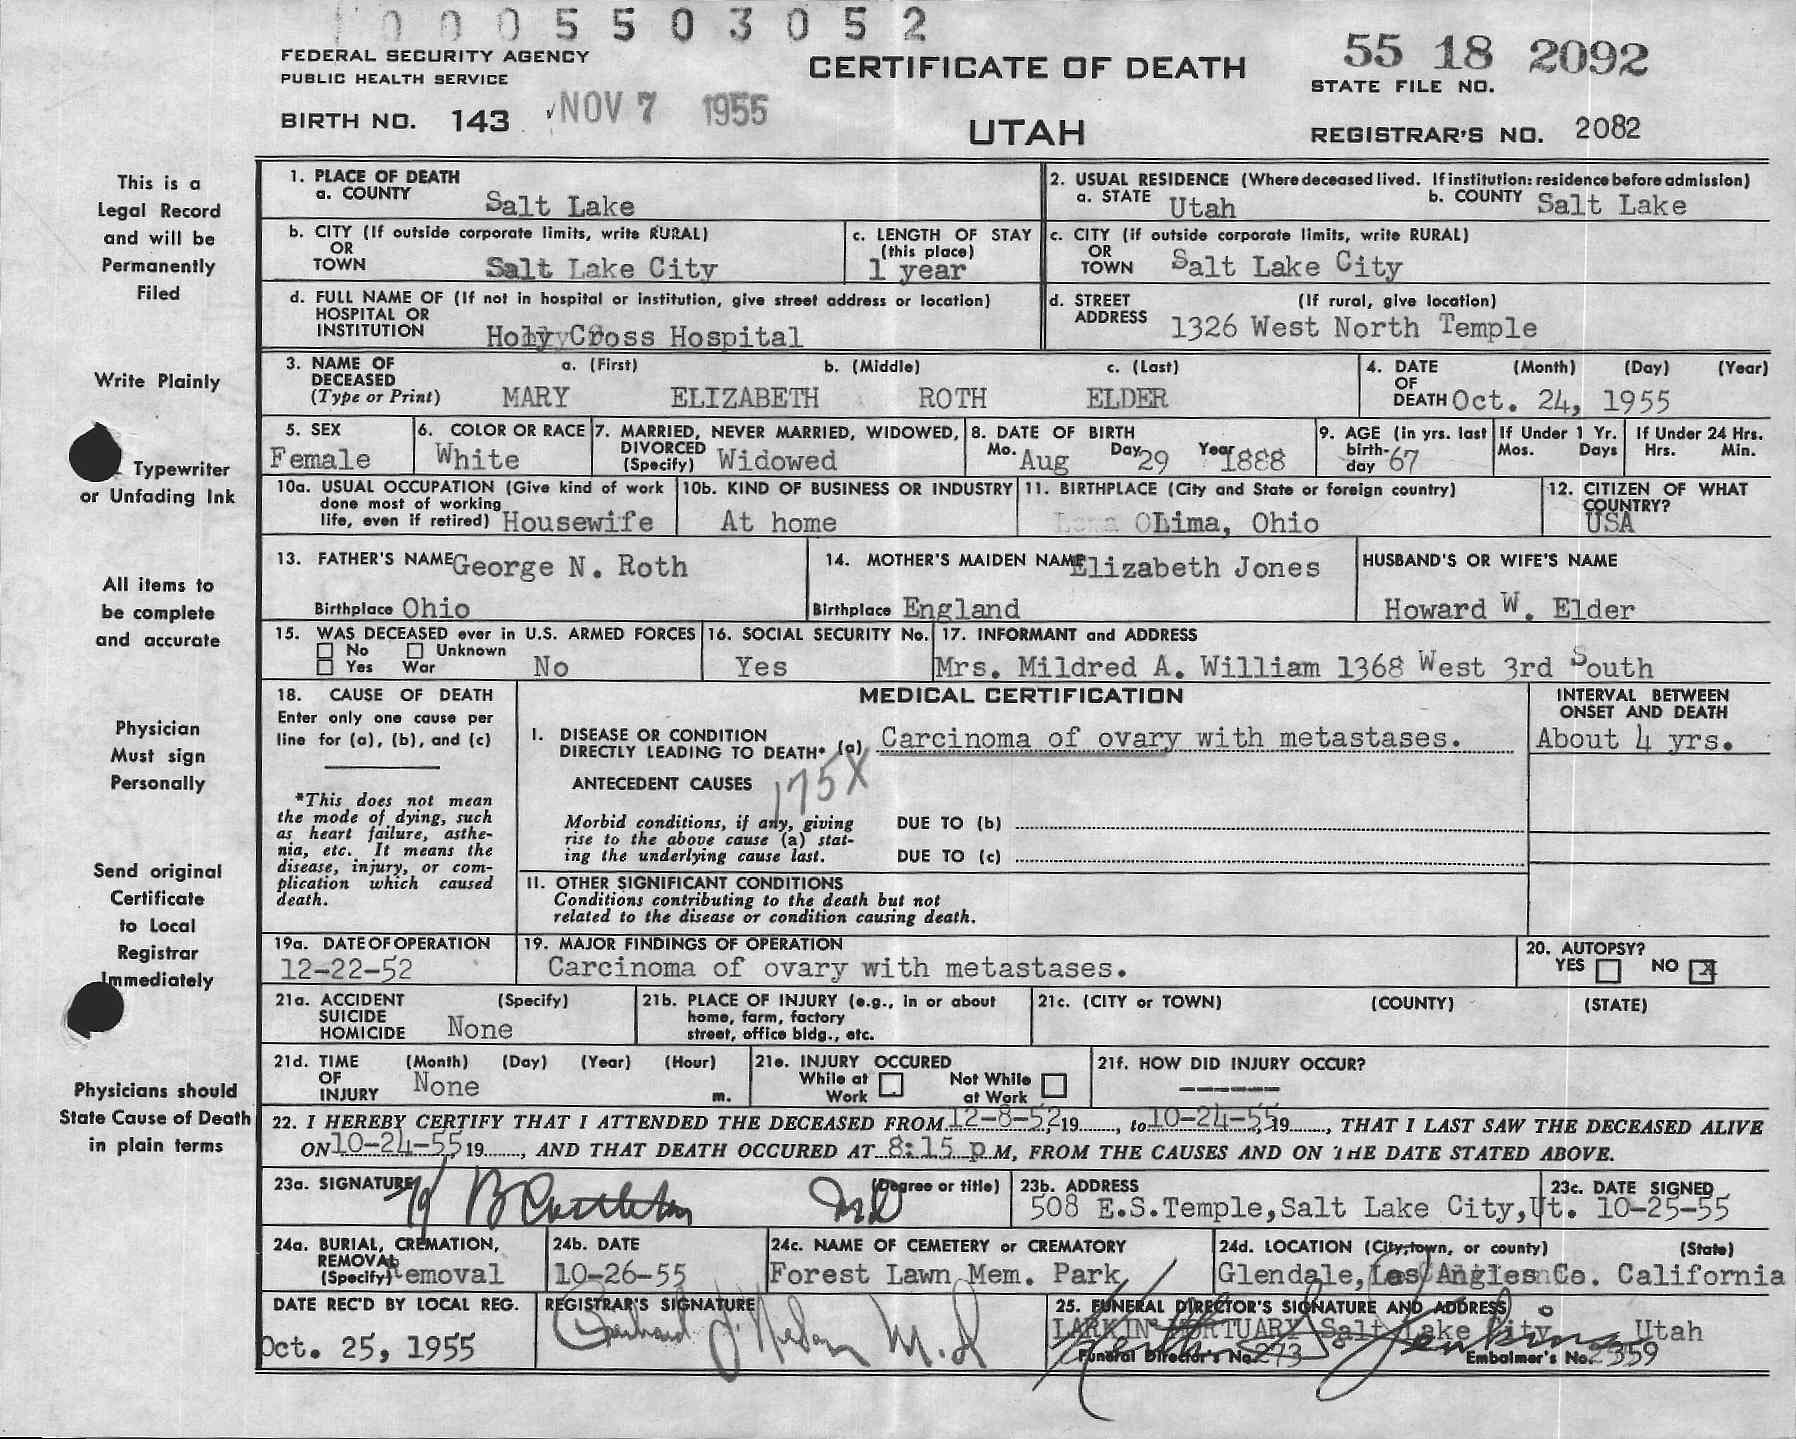 0005503052
FEDERAL SECURITY AGENCY
PUBLIC HEALTH SERVICE
BIRTH NO. 143 NOV 7 1955
CERTIFICATE OF DEATH
UTAH
55 18 2092
STATE FILE NO.
REGISTRAR'S NO. 2082
This is a
Legal Record
and will be
Permanently
Filed
Write Plainly
Typewriter
or Unfading Ink
All items to
be complete
and accurate
Physician
Must sign
Personally
Send original
Certificate
to Local
Registrar
Immediately
Physicians should
State Cause of Death
in plain terms
1. PLACE OF DEATH
a. COUNTY Salt Lake
2. USUAL RESIDENCE (Where deceased lived. If institution: residence before admission)
a. STATE Utah b. COUNTY Salt Lake
b. CITY (If outside corporate limits, write RURAL)
OR
TOWN Salt Lake City
c. LENGTH OF STAY
(this place)
1 year
c. CITY (if outside corporate limits, write RURAL)
OR
TOWN Salt Lake City
d. FULL NAME OF (If not in hospital or institution, give street address or location)
HOSPITAL OR
INSTITUTION Holy Cross Hospital
d. STREET (If rural, give location)
ADDRESS 1326 West North Temple
3. NAME OF a. (First) b. (Middle) c. (Last)
DECEASED
(Type or Print) MARY ELIZABETH ROTH ELDER
4. DATE (Month) (Day) (Year)
OF
DEATH Oct. 24, 1955
5. SEX
Female
6. COLOR OR RACE
White
7. MARRIED, NEVER MARRIED, WIDOWED,
DIVORCED
(Specify) Widowed
8. DATE OF BIRTH
Mo. Aug Day 29 Year 1888
9. AGE (in yrs. last
birth-
day 67
If Under 1 Yr.
Mos. Days
If Under 24 Hrs.
Hrs. Min.
10a. USUAL OCCUPATION (Give kind of work
done most of working
life, even if retired) Housewife
10b. KIND OF BUSINESS OR INDUSTRY
At home
11. BIRTHPLACE (City and State or foreign country)
Lima, Ohio
12. CITIZEN OF WHAT
COUNTRY?
USA
13. FATHER'S NAME George N. Roth
Birthplace Ohio
14. MOTHER'S MAIDEN NAME Elizabeth Jones
Birthplace England
HUSBAND'S OR WIFE'S NAME
Howard W. Elder
15. WAS DECEASED ever in U.S. ARMED FORCES
No Unknown
Yes War No
16. SOCIAL SECURITY No.
Yes
17. INFORMANT and ADDRESS
Mrs. Mildred A. William 1368 West 3rd South
18. CAUSE OF DEATH
Enter only one cause per
line for (a), (b), and (c)
*This does not mean
the mode of dying, such
as heart failure, asthe-
nia, etc. It means the
disease, injury, or com-
plication which caused
death.
MEDICAL CERTIFICATION
INTERVAL BETWEEN
ONSET AND DEATH
I. DISEASE OR CONDITION
DIRECTLY LEADING TO DEATH* (a) Carcinoma of ovary with metastases. About 4 yrs.
175X
ANTECEDENT CAUSES
Morbid conditions, if any, giving
rise to the above cause (a) stat-
ing the underlying cause last.
DUE TO (b)
DUE TO (c)
II. OTHER SIGNIFICANT CONDITIONS
Conditions contributing to the death but not
related to the disease or condition causing death.
19a. DATE OF OPERATION
12-22-52
19. MAJOR FINDINGS OF OPERATION
Carcinoma of ovary with metastases.
20. AUTOPSY?
YES NO X
21a. ACCIDENT (Specify)
SUICIDE
HOMICIDE None
21b. PLACE OF INJURY (e.g., in or about
home, farm, factory
street, office bldg., etc.
21c. (CITY or TOWN) (COUNTY) (STATE)
21d. TIME (Month) (Day) (Year) (Hour)
OF
INJURY None m.
21e. INJURY OCCURED
While at Work
Not While at Work
21f. HOW DID INJURY OCCUR?
------
22. I HEREBY CERTIFY THAT I ATTENDED THE DECEASED FROM 12-8-52, 19......, to 10-24-55, 19......, THAT I LAST SAW THE DECEASED ALIVE
ON 10-24-55, 19......, AND THAT DEATH OCCURED AT 8:15 p M, FROM THE CAUSES AND ON THE DATE STATED ABOVE.
23a. SIGNATURE (Degree or title)
MD
23b. ADDRESS
508 E.S.Temple, Salt Lake City, Ut.
23c. DATE SIGNED
10-25-55
24a. BURIAL, CREMATION,
REMOVAL
(Specify) Removal
24b. DATE
10-26-55
24c. NAME OF CEMETERY or CREMATORY
Forest Lawn Mem. Park
24d. LOCATION (City, town, or county) (State)
Glendale, Los Angles Co. California
DATE REC'D BY LOCAL REG.
Oct. 25, 1955
REGISTRAR'S SIGNATURE
M.D
25. FUNERAL DIRECTOR'S SIGNATURE AND ADDRESS
LARKIN MORTUARY Salt Lake City Utah
Funeral Director's No. 273 Embalmer's No. 359